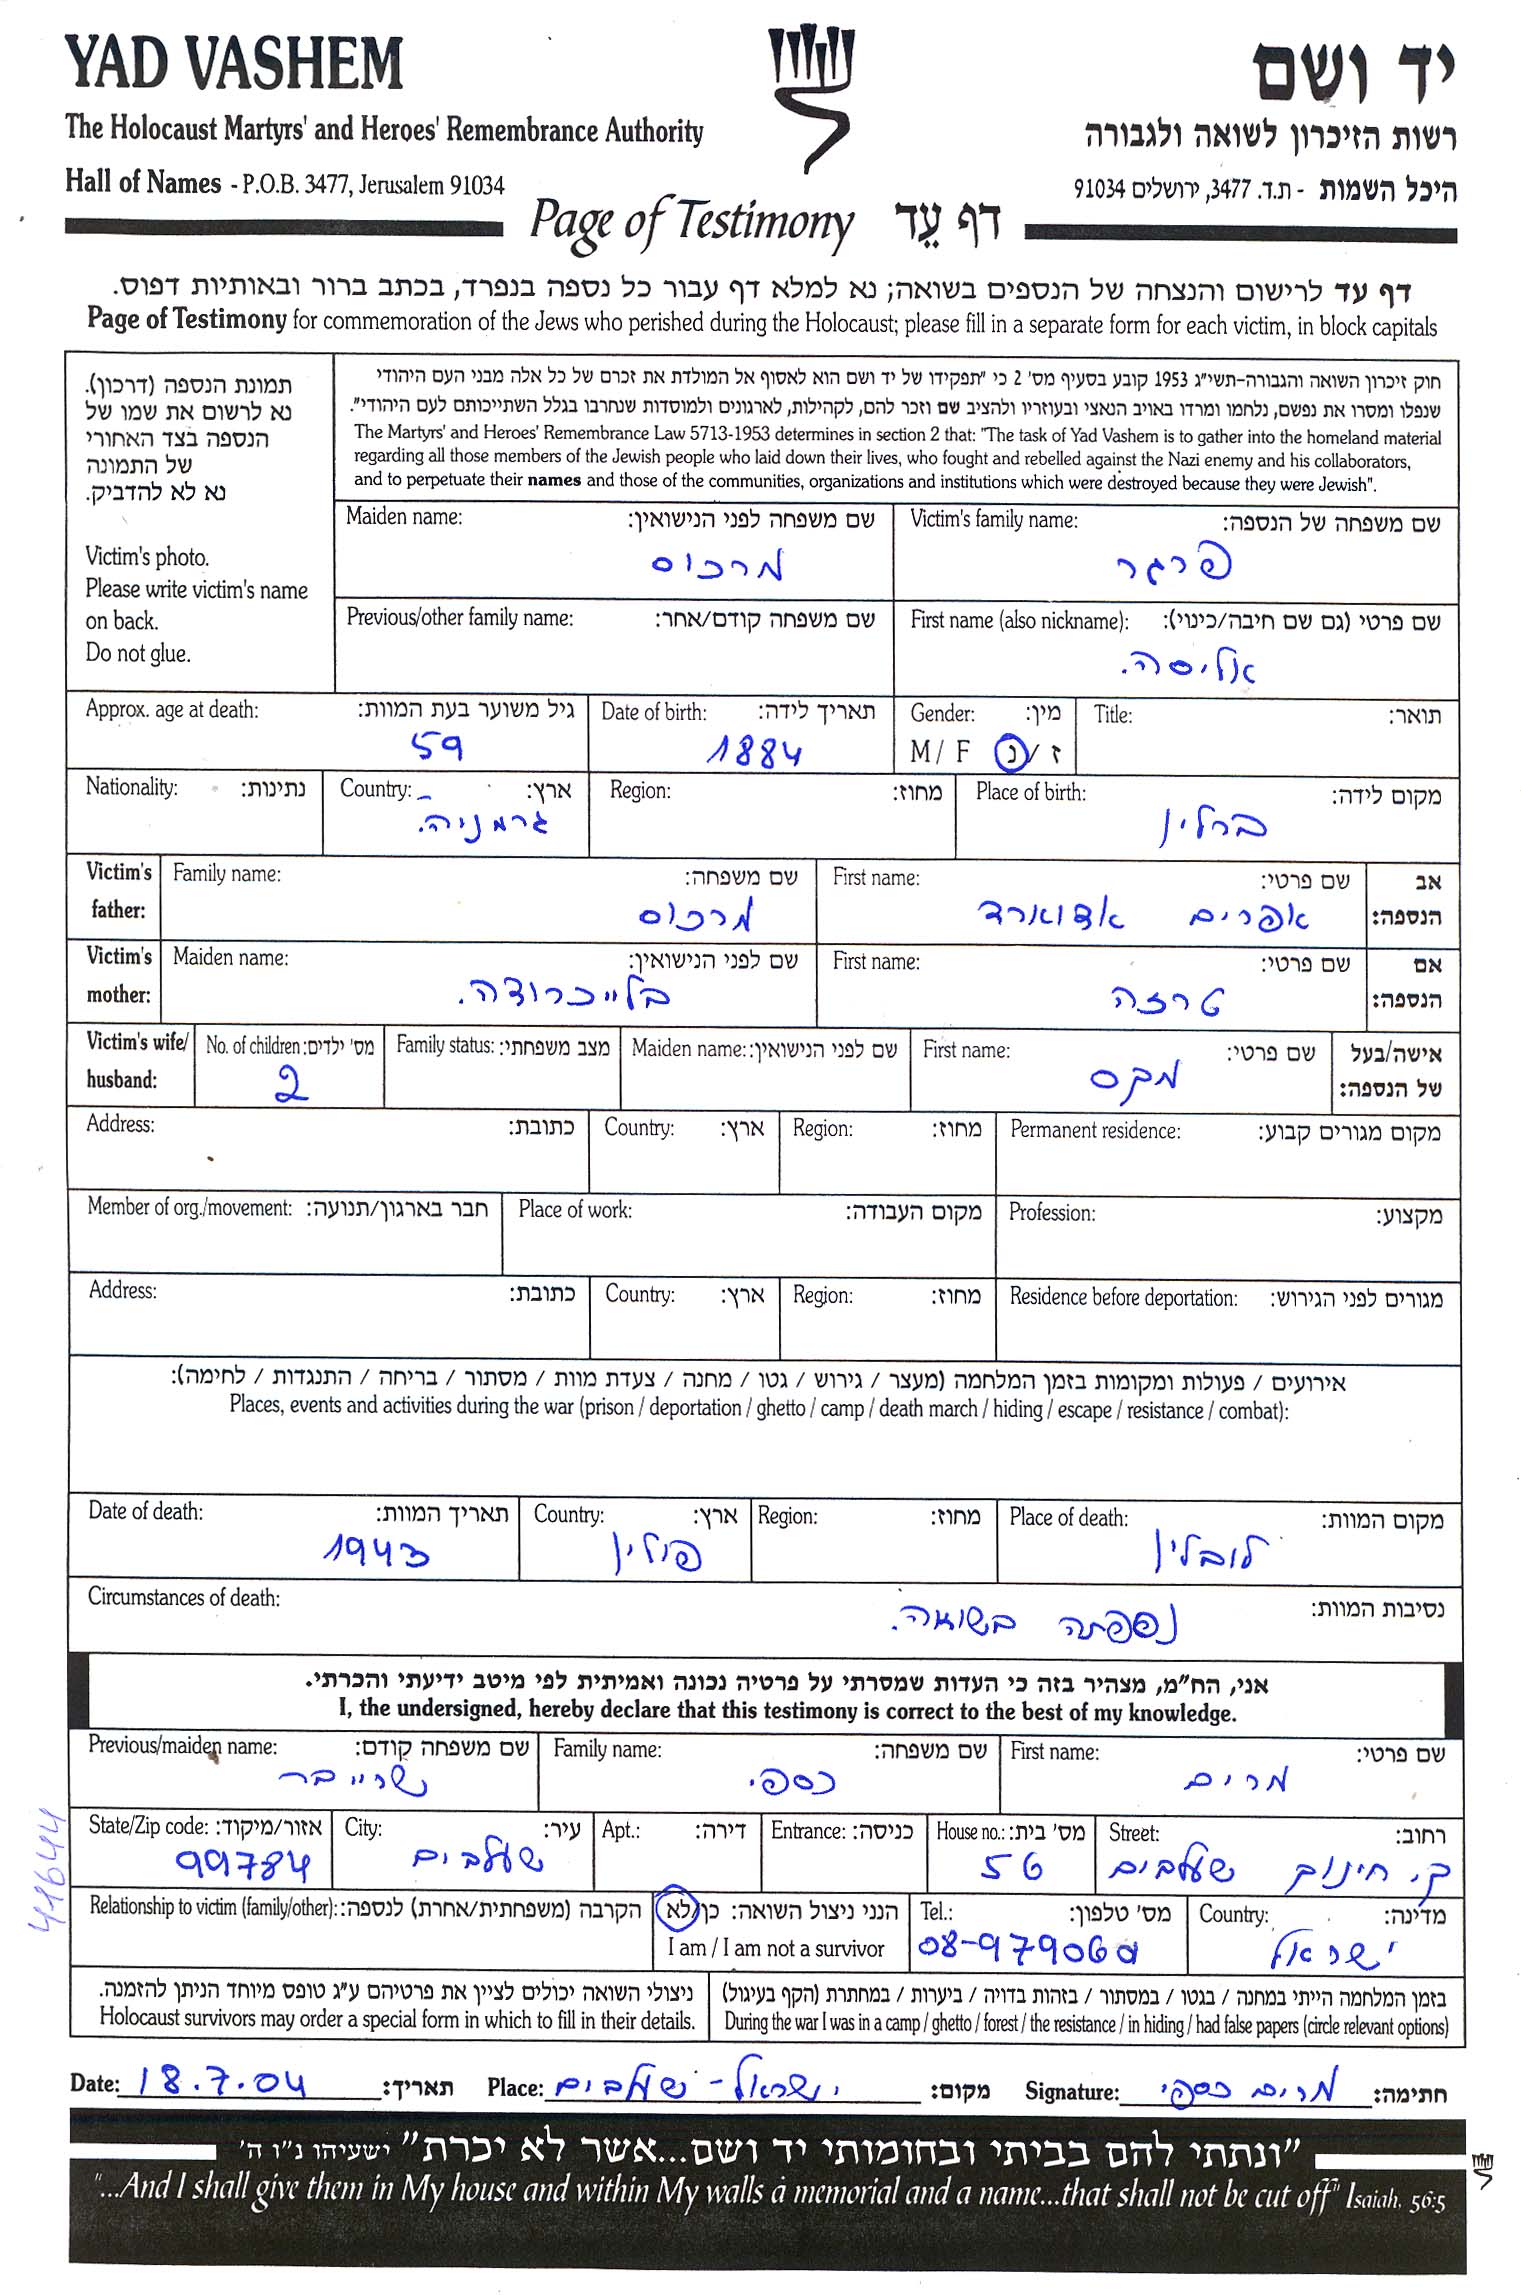 YAD VASHEM
יד ושם
The Holocaust Martyrs' and Heroes' Remembrance Authority
רשות הזיכרון לשואה ולגבורה
Hall of Names - P.O.B. 3477, Jerusalem 91034
היכל השמות - ת.ד. 3477, ירושלים 91034
Page of Testimony דף עֵד
דף עד לרישום והנצחה של הנספים בשואה; נא למלא דף עבור כל נספה בנפרד, בכתב ברור ובאותיות דפוס.
Page of Testimony for commemoration of the Jews who perished during the Holocaust; please fill in a separate form for each victim, in block capitals
תמונת הנספה (דרכון).
נא לרשום את שמו של
הנספה בצד האחורי
של התמונה
נא לא להדביק.
Victim's photo.
Please write victim's name
on back.
Do not glue.
חוק זיכרון השואה והגבורה-תשי"ג 1953 קובע בסעיף מס' 2 כי "תפקידו של יד ושם הוא לאסוף אל המולדת את זכרם של כל אלה מבני העם היהודי
שנפלו ומסרו את נפשם, נלחמו ומרדו באויב הנאצי ובעוזריו ולהציב שם וזכר להם, לקהילות, לארגונים ולמוסדות שנחרבו בגלל השתייכותם לעם היהודי".
The Martyrs' and Heroes' Remembrance Law 5713-1953 determines in section 2 that: "The task of Yad Vashem is to gather into the homeland material
regarding all those members of the Jewish people who laid down their lives, who fought and rebelled against the Nazi enemy and his collaborators,
and to perpetuate their names and those of the communities, organizations and institutions which were destroyed because they were Jewish".
Victim's family name: שם משפחה של הנספה:
פרגר
Maiden name: שם משפחה לפני הנישואין:
מרכוס
First name (also nickname): שם פרטי (גם שם חיבה/כינוי):
אליסה.
Previous/other family name: שם משפחה קודם/אחר:
Title: תואר:
Gender: מין:
M/ F ז /נ
Date of birth: תאריך לידה:
1884
Approx. age at death: גיל משוער בעת המוות:
59
Place of birth: מקום לידה:
ברלין
Region: מחוז:
Country: ארץ:
גרמניה.
Nationality: נתינות:
Victim's father: אב הנספה:
First name: שם פרטי:
אפרים אדוארד
Family name: שם משפחה:
מרכוס
Victim's mother: אם הנספה:
First name: שם פרטי:
טרזה
Maiden name: שם לפני הנישואין:
בלייכרודה.
Victim's wife/ husband: אישה/בעל של הנספה:
First name: שם פרטי:
מקס
Maiden name: שם לפני הנישואין:
Family status: מצב משפחתי:
No. of children: מס' ילדים:
2
Permanent residence: מקום מגורים קבוע:
Region: מחוז:
Country: ארץ:
Address: כתובת:
Profession: מקצוע:
Place of work: מקום העבודה:
Member of org./movement: חבר בארגון/תנועה:
Residence before deportation: מגורים לפני הגירוש:
Region: מחוז:
Country: ארץ:
Address: כתובת:
אירועים / פעולות ומקומות בזמן המלחמה (מעצר / גירוש / גטו / מחנה / צעדת מוות / מסתור / בריחה / התנגדות / לחימה):
Places, events and activities during the war (prison / deportation / ghetto / camp / death march / hiding / escape / resistance / combat):
Place of death: מקום המוות:
לובלין
Region: מחוז:
Country: ארץ:
פולין
Date of death: תאריך המוות:
1943
Circumstances of death: נסיבות המוות:
נספתה בשואה.
אני, הח"מ, מצהיר בזה כי העדות שמסרתי על פרטיה נכונה ואמיתית לפי מיטב ידיעתי והכרתי.
I, the undersigned, hereby declare that this testimony is correct to the best of my knowledge.
First name: שם פרטי:
מרים
Family name: שם משפחה:
כספי
Previous/maiden name: שם משפחה קודם:
שרייבר
Street: רחוב:
ק. חינוך שעלבים
House no.: מס' בית:
56
Entrance: כניסה:
Apt.: דירה:
City: עיר:
שעלבים
State/Zip code: אזור/מיקוד:
99784
Country: מדינה:
ישראל
Tel.: מס' טלפון:
08-979060
הנני ניצול השואה: כן/לא
I am / I am not a survivor
Relationship to victim (family/other): הקרבה (משפחתית/אחרת) לנספה:
בזמן המלחמה הייתי במחנה / בגטו / במסתור / בזהות בדויה / ביערות / במחתרת (הקף בעיגול)
During the war I was in a camp / ghetto / forest / the resistance / in hiding / had false papers (circle relevant options)
ניצולי השואה יכולים לציין את פרטיהם ע"ג טופס מיוחד הניתן להזמנה.
Holocaust survivors may order a special form in which to fill in their details.
Date: 18.7.04 תאריך: Place: ישראל - שעלבים מקום: Signature: מרים כספי חתימה:
"ונתתי להם בביתי ובחומותי יד ושם...אשר לא יכרת" ישעיהו נ"ו ה'
"...And I shall give them in My house and within My walls a memorial and a name...that shall not be cut off" Isaiah, 56:5
41644